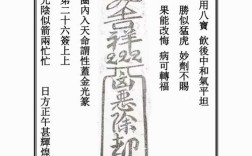 用八寶 飲後中和氣平坦
勝似猛虎 妙劑不賜
果能改悔 病可轉福
吉祥凶惡除却
圈內入天命謂性蓋金光篆
第二十六簽上上
光陰似箭兩忙忙
日方正午甚輝煌